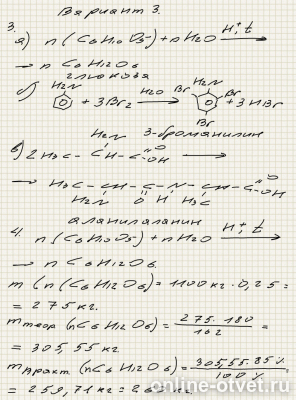 Вариант 3.
3.
а) n (C6H10O5) + n H2O H+, t
→ n C6H12O6
глюкоза
б) H2N + 3Br2 H2O → H2N Br Br Br + 3HBr
3-броманилин
в) 2 H3C - CH - C = O OH H2N →
→ H3C - CH - C - N - CH - C = O OH
H2N O H H3C
аланилаланин
4. n (C6H10O5) + n H2O H+, t
→ n C6H12O6.
m (n (C6H12O6) = 1100 кг · 0,25 =
= 275 кг.
m теор (n C6H12O6) = 275 · 180 / 162 =
= 305,55 кг.
m практ. (n C6H12O6) = 305,55 · 85% / 100% =
= 259,71 кг = 260 кг.
online-otvet.ru